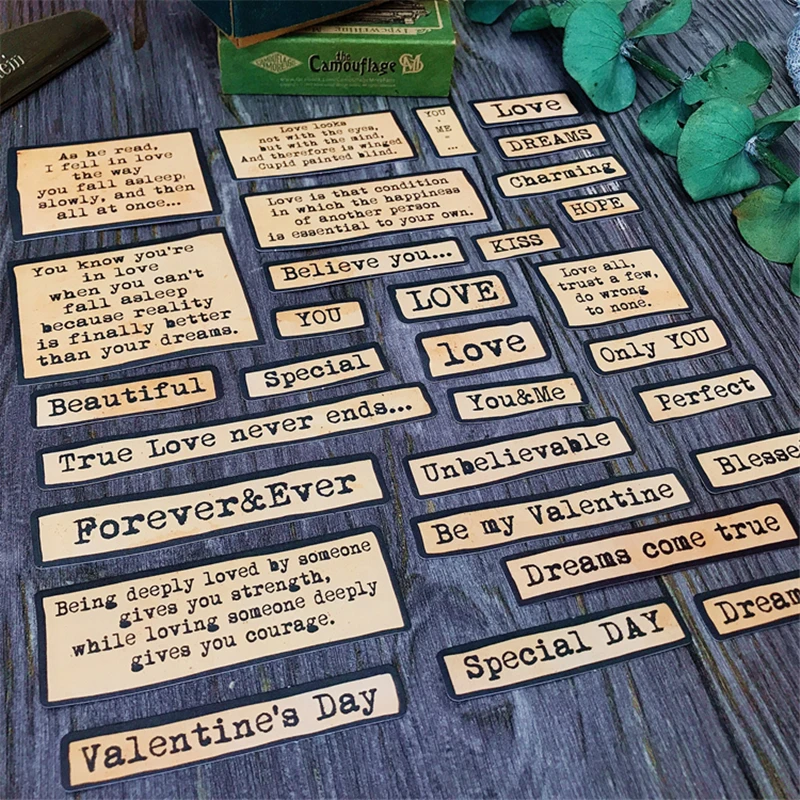 the
Camouflage
As he read,
I fell in love
the way
you fall asleep:
slowly, and then
all at once...
Love looks
not with the eyes,
but with the mind,
And therefore is winged
Cupid painted blind.
YOU
+
ME
=
...
Love
DREAMS
Charming
HOPE
Love is that condition
in which the happiness
of another person
is essential to your own.
KISS
You know you're
in love
when you can't
fall asleep
because reality
is finally better
than your dreams.
Believe you...
LOVE
Love all,
trust a few,
do wrong
to none.
YOU
love
Only YOU
Beautiful
Special
You&Me
Perfect
True Love never ends...
Unbelievable
Blesse
Forever&Ever
Be my Valentine
Dreams come true
Being deeply loved by someone
gives you strength,
while loving someone deeply
gives you courage.
Special DAY
Dream
Valentine's Day